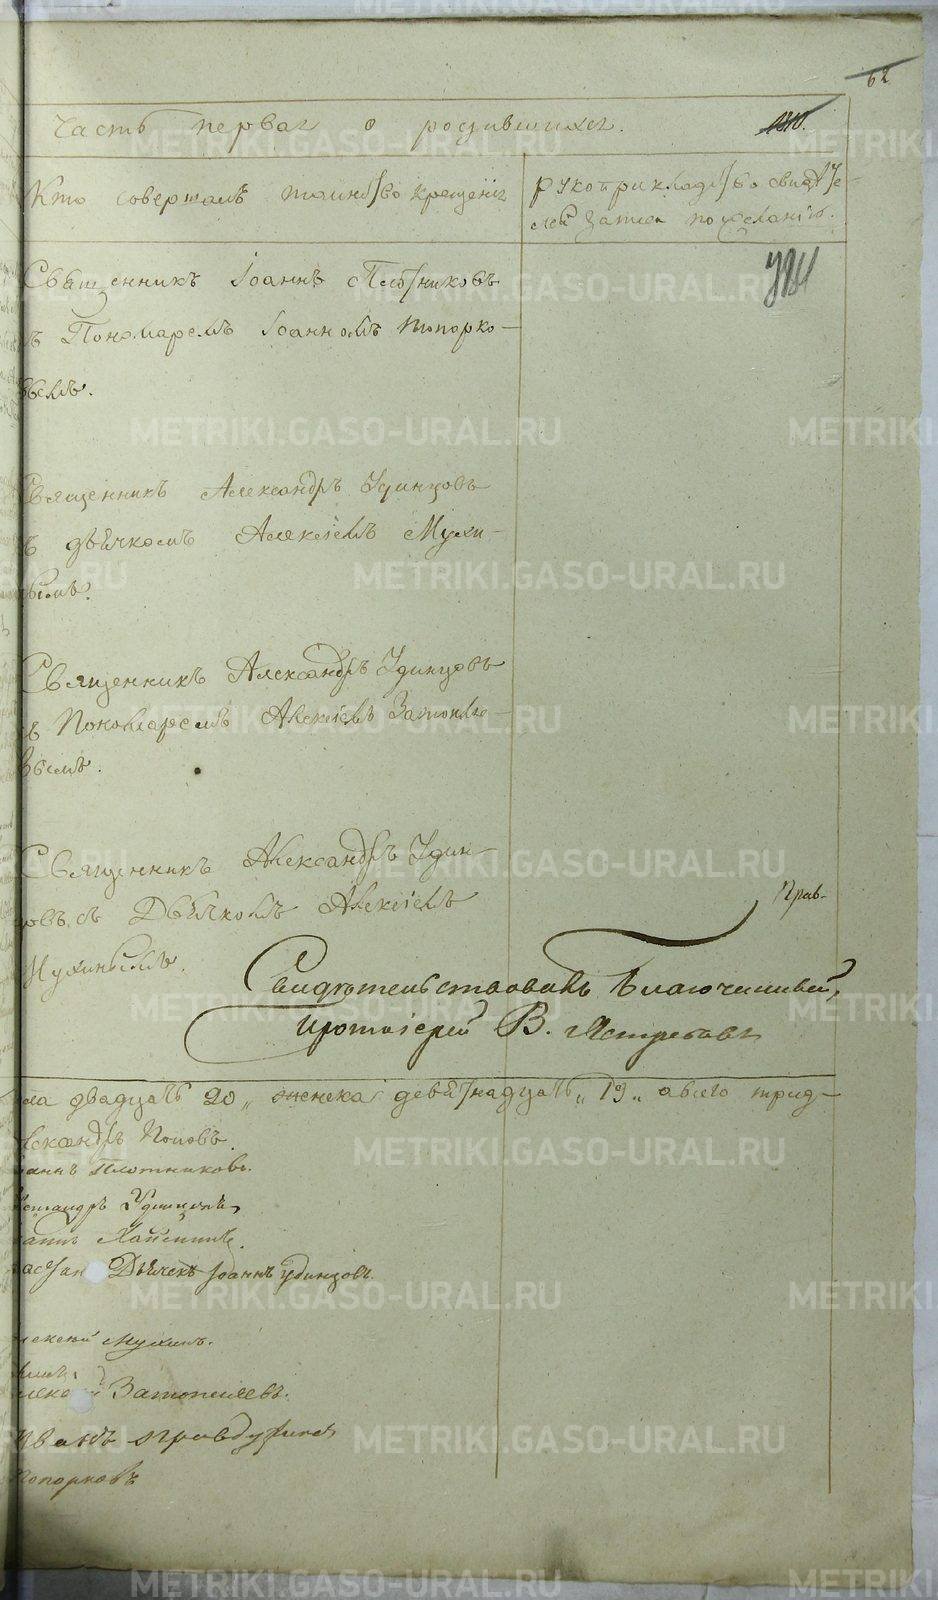 62
Часть первая о родившихся.
Кто совершалъ таинство крещенія
рукоприкладство свидѣте-
лей записи по желанію.
Священникъ Іоаннъ Плотниковъ
съ Пономаремъ Іоанномъ Топорко-
вымъ.
Священникъ Александръ Удинцовъ
съ дьячкомъ Алексіемъ Мухи-
нымъ.
Священникъ Александръ Удинцовъ
съ Пономаремъ Алексіемъ Затопляе-
вымъ.
Священникъ Александръ Удин-
цовъ съ Дьячкомъ Алексіемъ
Мухинымъ.
Прав-
Свидѣтельствовалъ Благочинный,
Протоіерей В. Ястребовъ
ла двадцать 20 „ женска девятнадцать „ 19 „ а всего трид-
лександръ Поповъ.
аннъ Плотниковъ.
лександръ Удинцовъ
Дьячекъ Іоаннъ Удинцовъ.
лексѣй Мухинъ.
Затопляевъ.
Топорковъ
METRIKI.GASO-URAL.RU